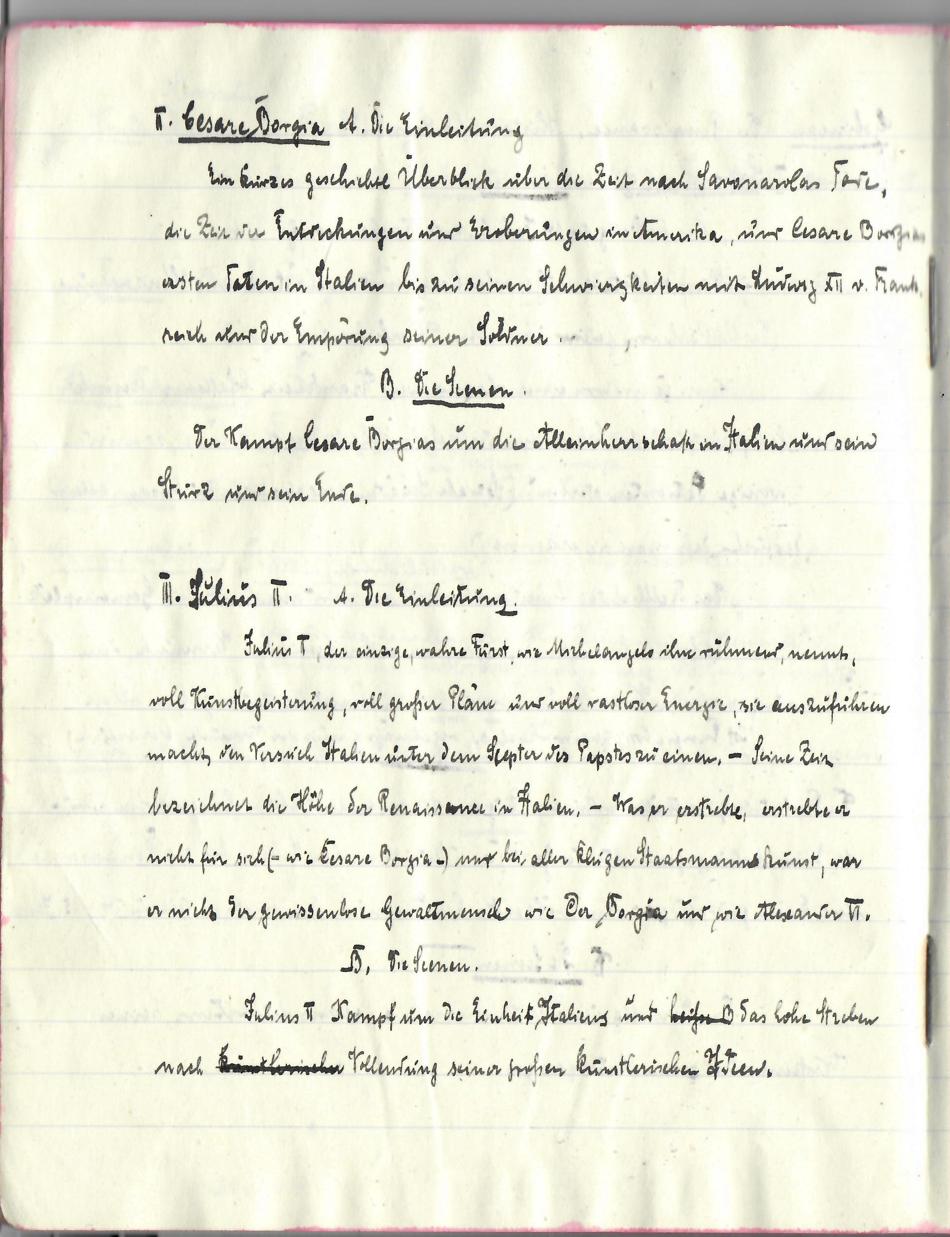 II. Cesare Borgia A. Die Einleitung
Ein kurzes geschichtl Überblick über die Zeit nach Savonarolas Tode,
die Zeit der Entdeckungen und Eroberungen in Amerika, und Cesare Borgias
ersten Taten in Italien bis zu seinen Schwierigkeiten mit Ludwig XII v. Frank,
reich und der Empörung seiner Söldner.
B. Die Scenen.
Der Kampf Cesare Borgias um die Alleinherrschaft in Italien und sein
Sturz und sein Ende.
III. Julius II. A. Die Einleitung.
Julius II, der einzige, wahre Fürst, wie Michelangelo ihn rühmend, nennt,
voll Kunstbegeisterung, voll großer Pläne und voll rastloser Energie, sie auszuführen
macht, den Versuch Italien unter dem Scepter des Papstes zu einen. – Seine Zeit
bezeichnet die Höhe der Renaissance in Italien. – Was er erstrebte, erstrebte er
nicht für sich (– wie Cesare Borgia –) und bei aller klugen Staatsmannskunst, war
er nicht der gewissenlose Gewaltmensch wie Der Borgia und wie Alexander VI.
B. Die Scenen.
Julius II Kampf um die Einheit Italiens und das hohe Streben
nach künstlerischer Vollendung seiner großen künstlerischen Ideen.